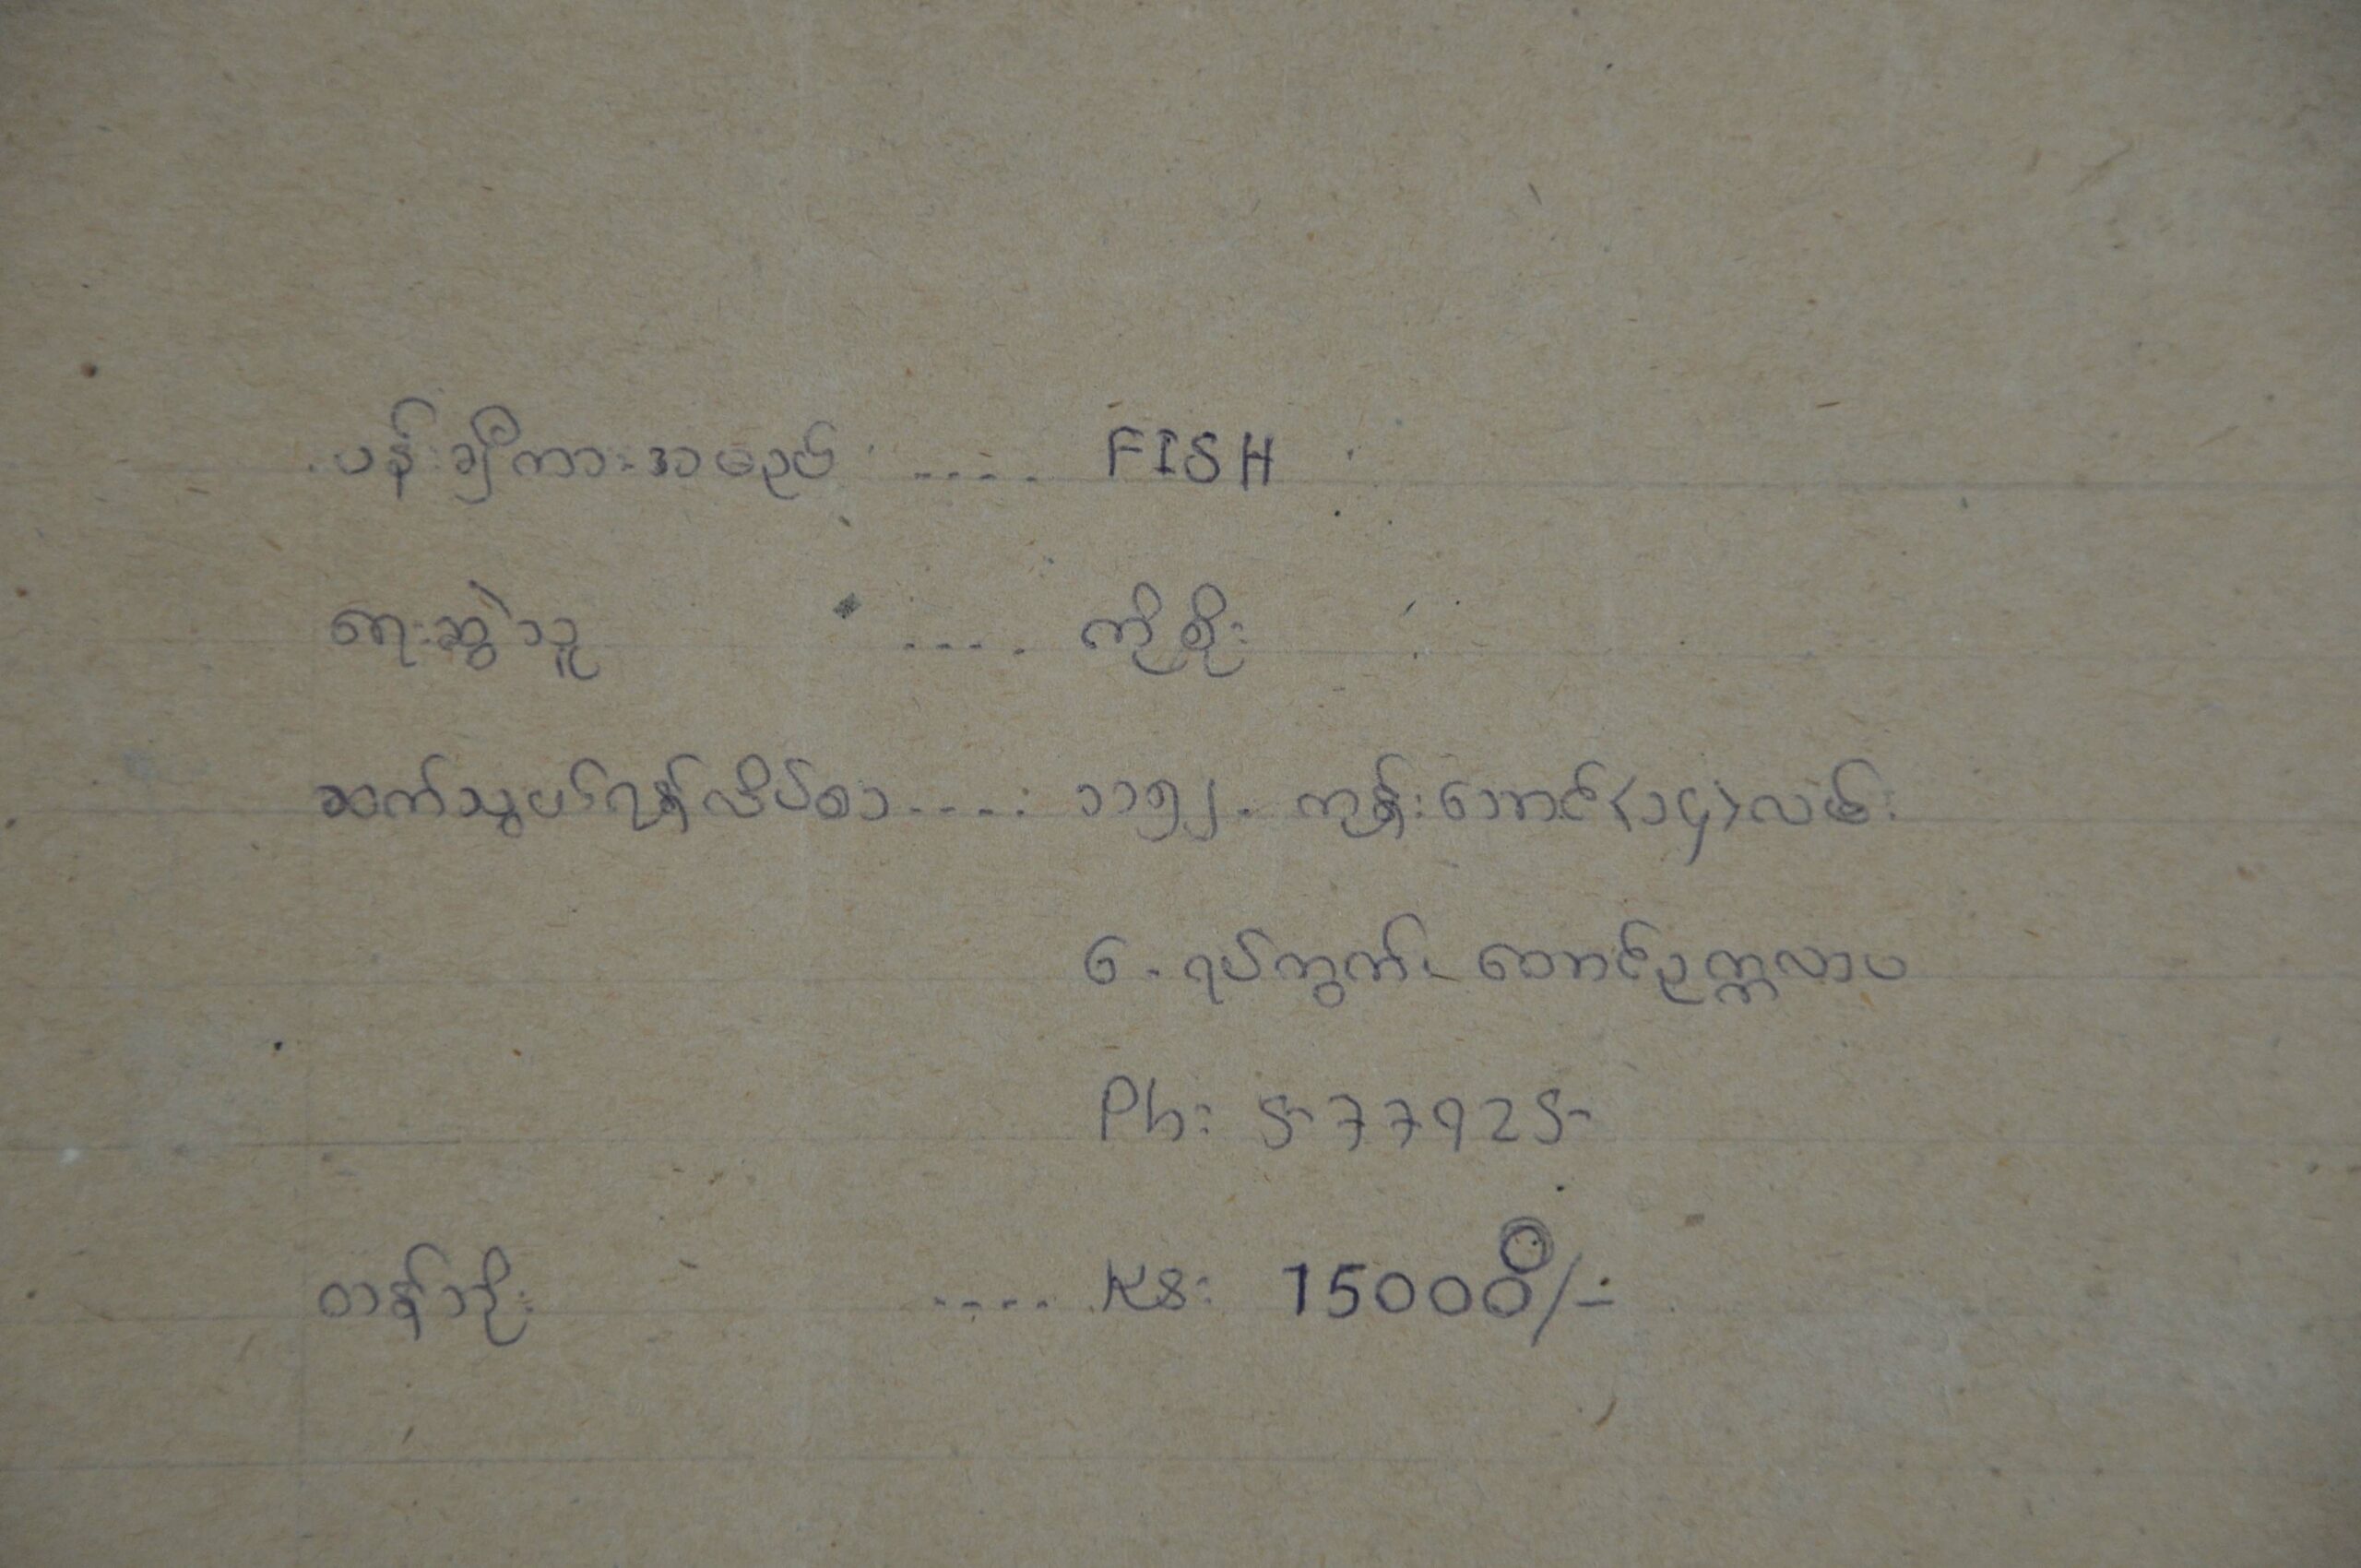 ပန်းချီကားအမည် .... FISH
ရေးဆွဲသူ .... ကိုစိုး
ဆက်သွယ်ရန်လိပ်စာ .... ၁၁၅၂. ကျန်းအောင်<၁၄>လမ်း
၆. ရပ်ကွက်. တောင်ဥက္ကလာပ
Ph: 577925
တန်ဘိုး .... Ks: 15000/-